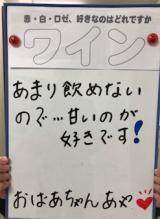 赤・白・ロゼ、好きなのはどれですか
ワイン
あまり飲めない
ので…甘いのが
好きです!
おばあちゃんあや